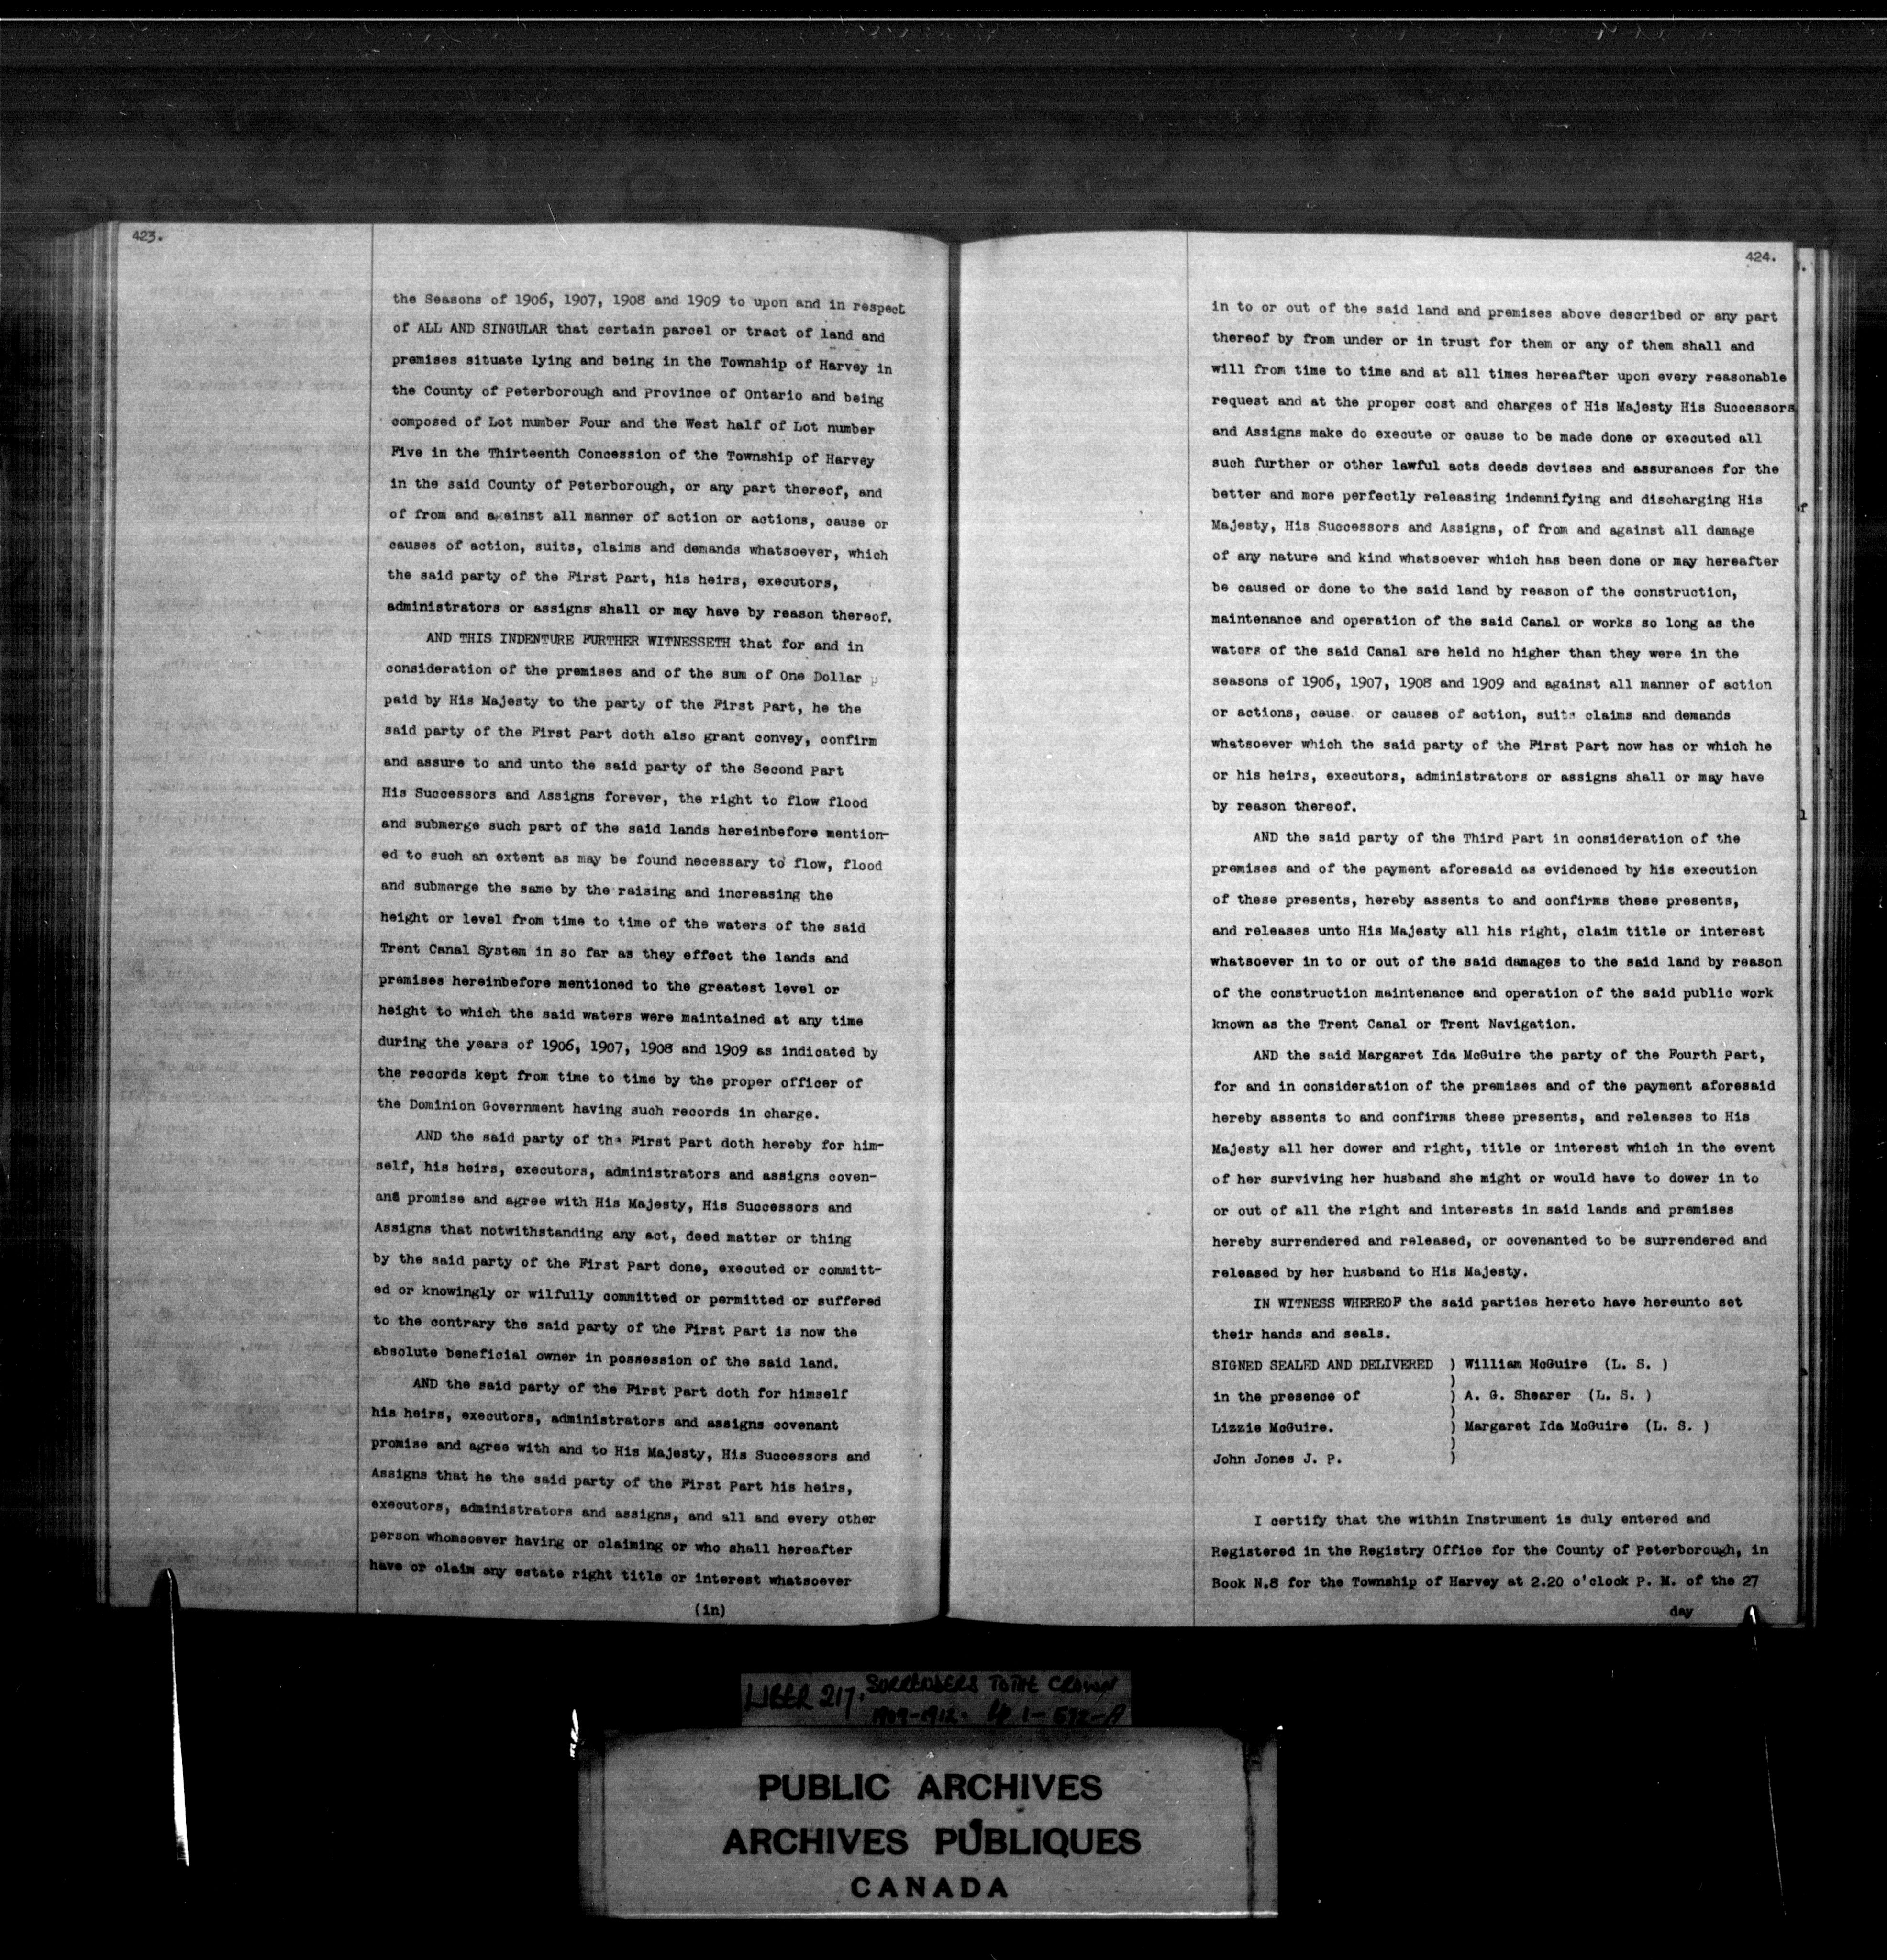 423.
the Seasons of 1906, 1907, 1908 and 1909 to upon and in respect
of ALL AND SINGULAR that certain parcel or tract of land and
premises situate lying and being in the Township of Harvey in
the County of Peterborough and Province of Ontario and being
composed of Lot number Four and the West half of Lot number
Five in the Thirteenth Concession of the Township of Harvey
in the said County of Peterborough, or any part thereof, and
of from and against all manner of action or actions, cause or
causes of action, suits, claims and demands whatsoever, which
the said party of the First Part, his heirs, executors,
administrators or assigns shall or may have by reason thereof.
AND THIS INDENTURE FURTHER WITNESSETH that for and in
consideration of the premises and of the sum of One Dollar
paid by His Majesty to the party of the First Part, he the
said party of the First Part doth also grant convey, confirm
and assure to and unto the said party of the Second Part
His Successors and Assigns forever, the right to flow flood
and submerge such part of the said lands hereinbefore mention-
ed to such an extent as may be found necessary to flow, flood
and submerge the same by the raising and increasing the
height or level from time to time of the waters of the said
Trent Canal System in so far as they effect the lands and
premises hereinbefore mentioned to the greatest level or
height to which the said waters were maintained at any time
during the years of 1906, 1907, 1908 and 1909 as indicated by
the records kept from time to time by the proper officer of
the Dominion Government having such records in charge.
AND the said party of the First Part doth hereby for him-
self, his heirs, executors, administrators and assigns coven-
ant promise and agree with His Majesty, His Successors and
Assigns that notwithstanding any act, deed matter or thing
by the said party of the First Part done, executed or committ-
ed or knowingly or wilfully committed or permitted or suffered
to the contrary the said party of the First Part is now the
absolute beneficial owner in possession of the said land.
AND the said party of the First Part doth for himself
his heirs, executors, administrators and assigns covenant
promise and agree with and to His Majesty, His Successors and
Assigns that he the said party of the First Part his heirs,
executors, administrators and assigns, and all and every other
person whomsoever having or claiming or who shall hereafter
have or claim any estate right title or interest whatsoever
(in)
424.
in to or out of the said land and premises above described or any part
thereof by from under or in trust for them or any of them shall and
will from time to time and at all times hereafter upon every reasonable
request and at the proper cost and charges of His Majesty His Successors
and Assigns make do execute or cause to be made done or executed all
such further or other lawful acts deeds devises and assurances for the
better and more perfectly releasing indemnifying and discharging His
Majesty, His Successors and Assigns, of from and against all damage
of any nature and kind whatsoever which has been done or may hereafter
be caused or done to the said land by reason of the construction,
maintenance and operation of the said Canal or works so long as the
waters of the said Canal are held no higher than they were in the
seasons of 1906, 1907, 1908 and 1909 and against all manner of action
or actions, cause or causes of action, suits claims and demands
whatsoever which the said party of the First Part now has or which he
or his heirs, executors, administrators or assigns shall or may have
by reason thereof.
AND the said party of the Third Part in consideration of the
premises and of the payment aforesaid as evidenced by his execution
of these presents, hereby assents to and confirms these presents,
and releases unto His Majesty all his right, claim title or interest
whatsoever in to or out of the said damages to the said land by reason
of the construction maintenance and operation of the said public work
known as the Trent Canal or Trent Navigation.
AND the said Margaret Ida McGuire the party of the Fourth Part,
for and in consideration of the premises and of the payment aforesaid
hereby assents to and confirms these presents, and releases to His
Majesty all her dower and right, title or interest which in the event
of her surviving her husband she might or would have to dower in to
or out of all the right and interests in said lands and premises
hereby surrendered and released, or covenanted to be surrendered and
released by her husband to His Majesty.
IN WITNESS WHEREOF the said parties hereto have hereunto set
their hands and seals.
SIGNED SEALED AND DELIVERED ) William McGuire (L. S. )
)
in the presence of ) A. G. Shearer (L. S. )
)
Lizzie McGuire. ) Margaret Ida McGuire (L. S. )
)
John Jones J. P. )
I certify that the within Instrument is duly entered and
Registered in the Registry Office for the County of Peterborough, in
Book N.8 for the Township of Harvey at 2.20 o'clock P. M. of the 27
day
LIBER 217. SURRENDERS TO THE CROWN
1909-1912. pp 1-592-A
PUBLIC ARCHIVES
ARCHIVES PUBLIQUES
CANADA